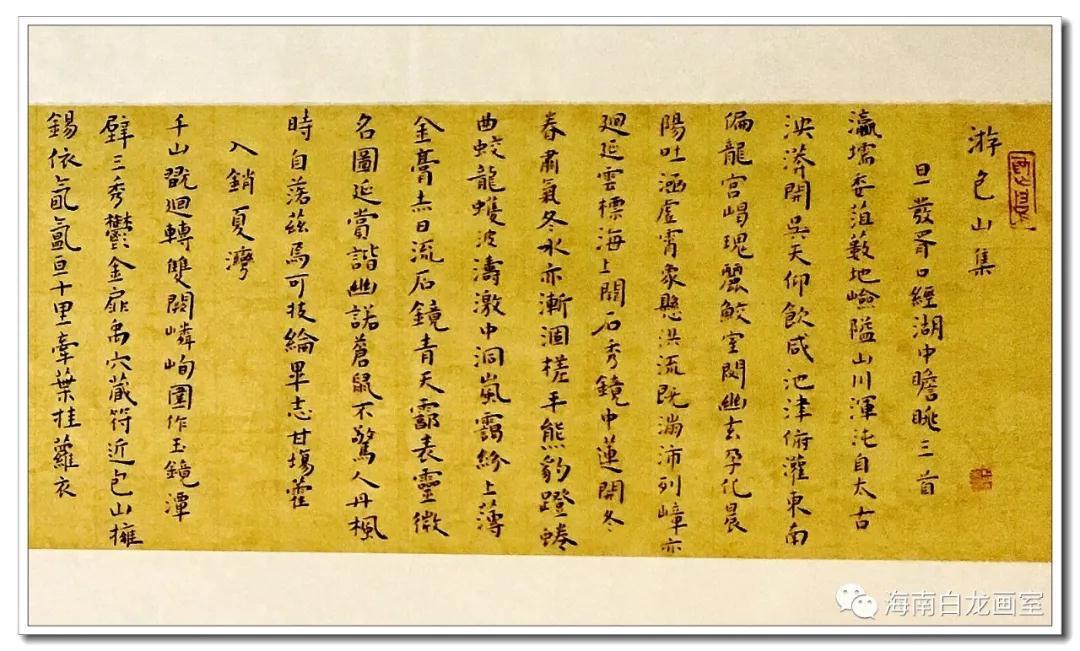 游包山集
日一發胥口經湖中瞻眺三首
瀛壖委菹藪地嶮隘山川渾沌自太古
泱漭開吳天仰飲咸池津俯灌東南
偏龍宮嵑瑰麗鮫室閟幽玄孕化晨
陽吐涵虛霄象懸洪流既滿沛列嶂亦
廻延雲標海上闕石秀鏡中蓮開冬
春肅氣冬水亦漸涸槎手熊豹蹬蜷
曲蛟龍蠖波濤激中洞嵐靄紛上薄
金膏赤日流石鏡青天霩表靈微
名圖延賞諧幽諾蒼鼠不驚人丹楓
時自落茲焉可投綸畢志甘場藿
入銷夏灣
千山戬迴轉雙闕嶙峋圍作玉鏡潭
壁三秀鬱金扉禹穴藏符近包山擁
錫依氤氳亘十里牽葉挂蘿衣
海南白龙画室